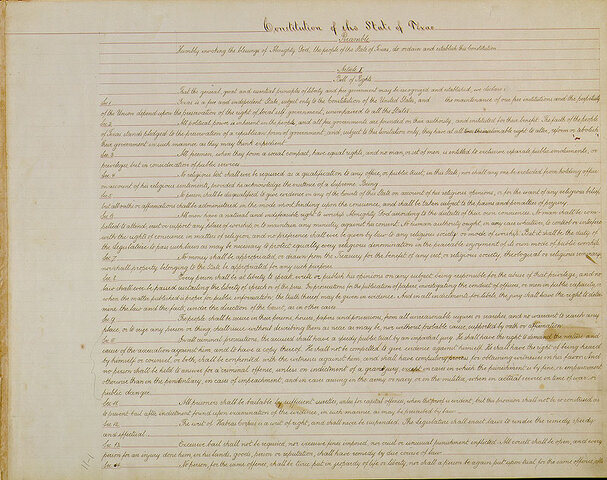 Constitution of the State of Texas
Preamble
Humbly invoking the blessings of Almighty God, the people of the State of Texas, do ordain and establish this Constitution
Article I
Bill of Rights
That the general, great and essential principles of liberty and free government may be recognized and established, we declare:
Sec 1. Texas is a free and independent State, subject only to the Constitution of the United States, and the maintenance of our free institutions and the perpetuity
of the Union depend upon the preservation of the right of local self government, unimpaired to all the States.
Sec 2. All political power is inherent in the people, and all free governments are founded on their authority, and instituted for their benefit. The faith of the people
of Texas stands pledged to the preservation of a republican form of government, and, subject to this limitation only, they have at all times the inalienable right to alter, reform or abolish
their government in such manner as they may think expedient.
Sec 3. All freemen, when they form a social compact, have equal rights, and no man, or set of men, is entitled to exclusive separate public emoluments, or
privileges, but in consideration of public services.
Sec 4. No religious test shall ever be required as a qualification to any office, or public trust, in this State; nor shall any one be excluded from holding office
on account of his religious sentiments, provided he acknowledge the existence of a Supreme Being.
Sec 5. No person shall be disqualified to give evidence in any of the Courts of this State on account of his religious opinions, or for the want of any religious belief,
but all oaths or affirmations shall be administered in the mode most binding upon the conscience, and shall be taken subject to the pains and penalties of perjury.
Sec 6. All men have a natural and indefeasible right to worship Almighty God according to the dictates of their own consciences. No man shall be com-
pelled to attend, erect or support any place of worship, or to maintain any ministry against his consent. No human authority ought, in any case whatever, to control or interfere
with the rights of conscience in matters of religion, and no preference shall ever be given by law to any religious society or mode of worship. But it shall be the duty of
the Legislature to pass such laws as may be necessary to protect equally every religious denomination in the peaceable enjoyment of its own mode of public worship.
Sec 7. No money shall be appropriated, or drawn from the Treasury for the benefit of any sect, or religious society, theological or religious seminary
nor shall property belonging to the State be appropriated for any such purposes.
Sec 8. Every person shall be at liberty to speak, write or publish his opinions on any subject, being responsible for the abuse of that privilege; and no
law shall ever be passed curtailing the liberty of speech or of the press. In prosecutions for the publication of papers, investigating the conduct of officers, or men in public capacity, or
when the matter published is proper for public information, the truth thereof may be given in evidence. And in all indictments for libels, the jury shall have the right to deter-
mine the law and the facts, under the direction of the court, as in other cases.
Sec 9. The people shall be secure in their persons, houses, papers and possessions, from all unreasonable seizures or searches, and no warrant to search any
place, or to seize any person or thing, shall issue without describing them as near as may be, nor without probable cause, supported by oath or affirmation.
Sec 10. In all criminal prosecutions, the accused shall have a speedy public trial by an impartial jury. He shall have the right to demand the nature and
cause of the accusation against him, and to have a copy thereof. He shall not be compelled to give evidence against himself. He shall have the right of being heard
by himself or counsel, or both; shall be confronted with the witnesses against him, and shall have compulsory process for obtaining witnesses in his favor. And
no person shall be held to answer for a criminal offense, unless on indictment of a grand jury, except in cases in which the punishment is by fine, or imprisonment
otherwise than in the penitentiary, in cases of impeachment, and in cases arising in the army or navy, or in the militia, when in actual service in time of war or
public danger.
Sec 11. All prisoners shall be bailable by sufficient sureties, unless for capital offences, when the proof is evident; but this provision shall not be so construed as
to prevent bail after indictment found upon examination of the evidence, in such manner as may be prescribed by law.
Sec 12. The writ of Habeas corpus is a writ of right, and shall never be suspended. The Legislature shall enact laws to render the remedy speedy
and effectual.
Sec 13. Excessive bail shall not be required, nor excessive fines imposed, nor cruel or unusual punishment inflicted. All courts shall be open, and every
person for an injury done him, in his lands, goods, person or reputation, shall have remedy by due course of law.
Sec 14. No person, for the same offence, shall be twice put in jeopardy of life or liberty; nor shall a person be again put upon trial for the same offence, after